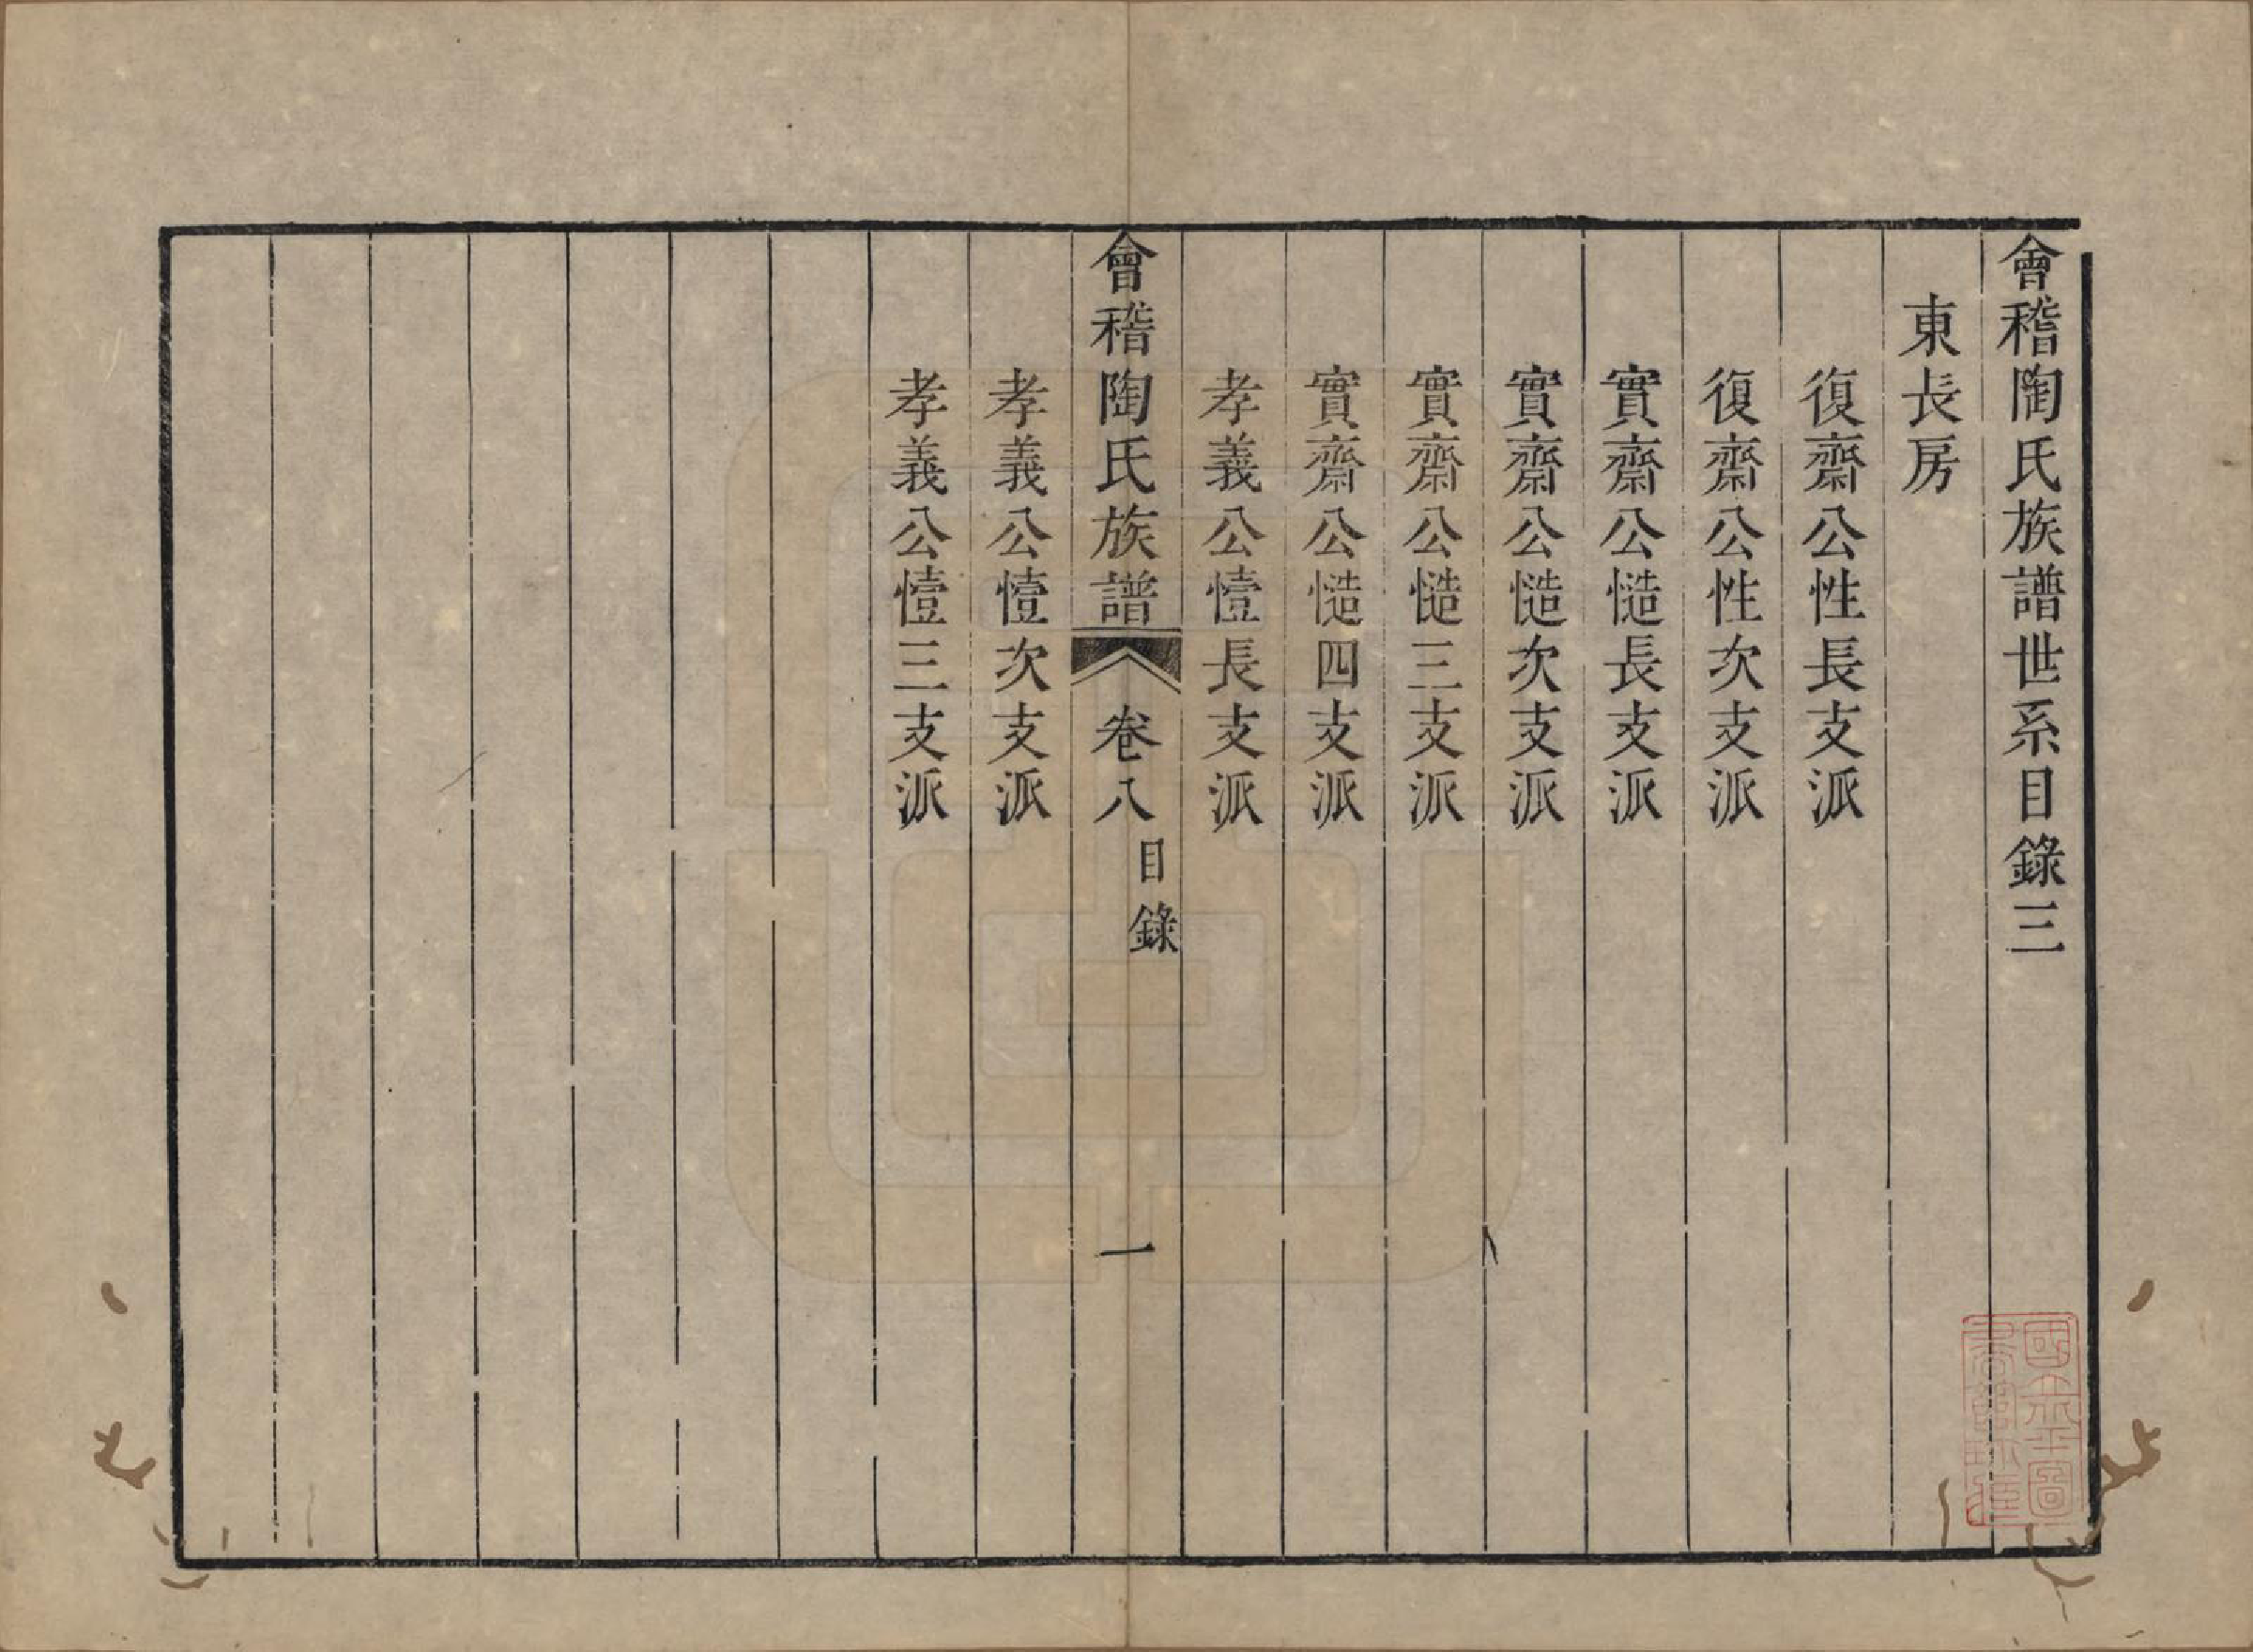 會稽陶氏族譜世系目錄三
東長房
復齋公性長支派
復齋公性次支派
實齋公慥長支派
實齋公慥次支派
實齋公慥三支派
實齋公慥四支派
孝義公懛長支派
會稽陶氏族譜 卷八 目錄 一
孝義公懛次支派
孝義公懛三支派
國立北平圖書館珍藏